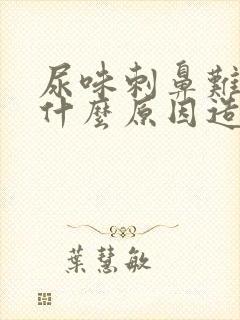 尿味刺鼻難
什麼原因造
葉慧敏